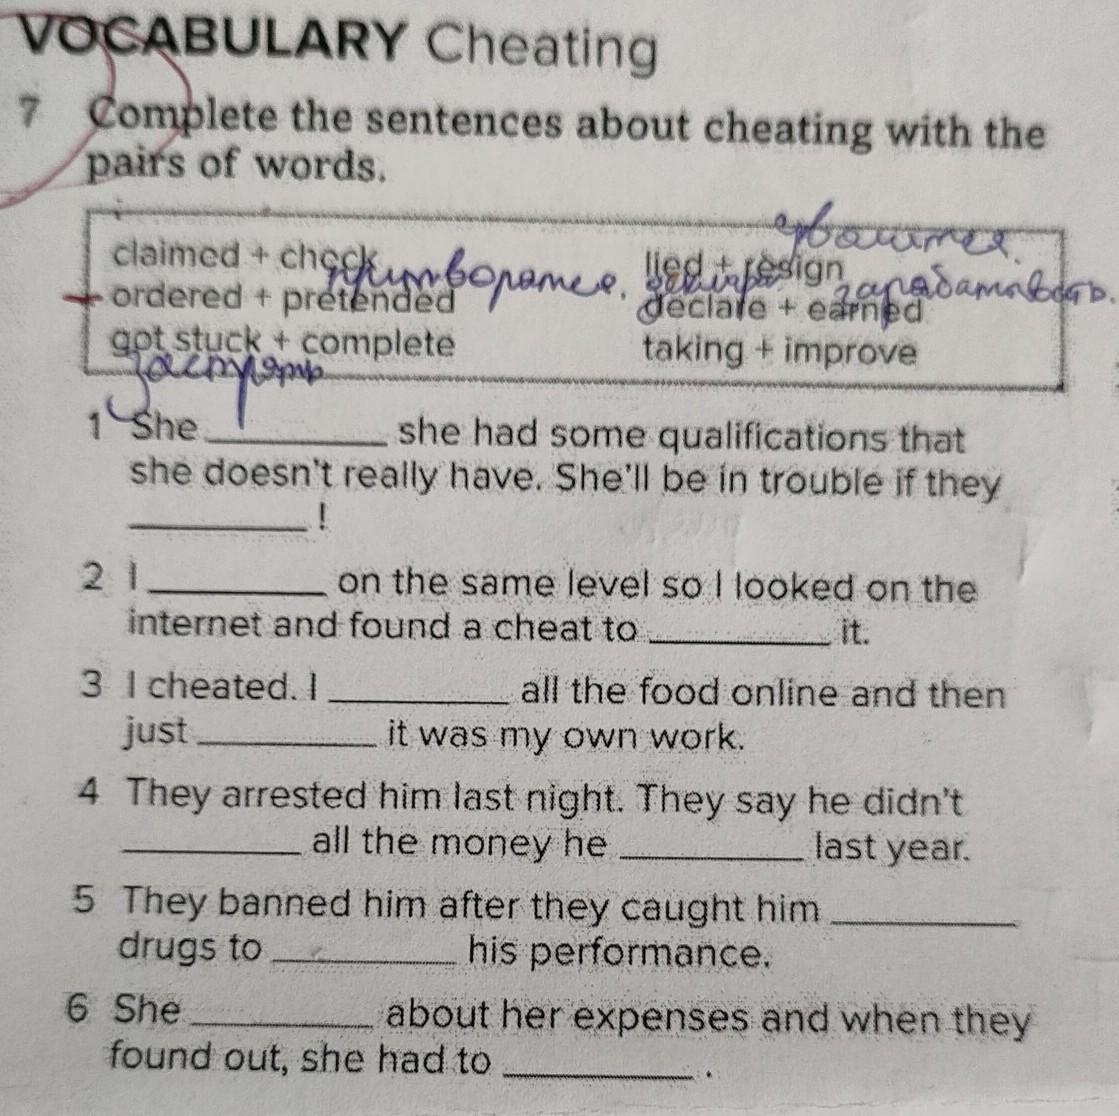 VOCABULARY Cheating
7 Complete the sentences about cheating with the
pairs of words.
claimed + check
lied + resign
ordered + pretended
declare + earned
got stuck + complete
taking + improve
1 She ________ she had some qualifications that
she doesn't really have. She'll be in trouble if they
________!
2 I ________ on the same level so I looked on the
internet and found a cheat to ________ it.
3 I cheated. I ________ all the food online and then
just ________ it was my own work.
4 They arrested him last night. They say he didn't
________ all the money he ________ last year.
5 They banned him after they caught him ________
drugs to ________ his performance.
6 She ________ about her expenses and when they
found out, she had to ________.